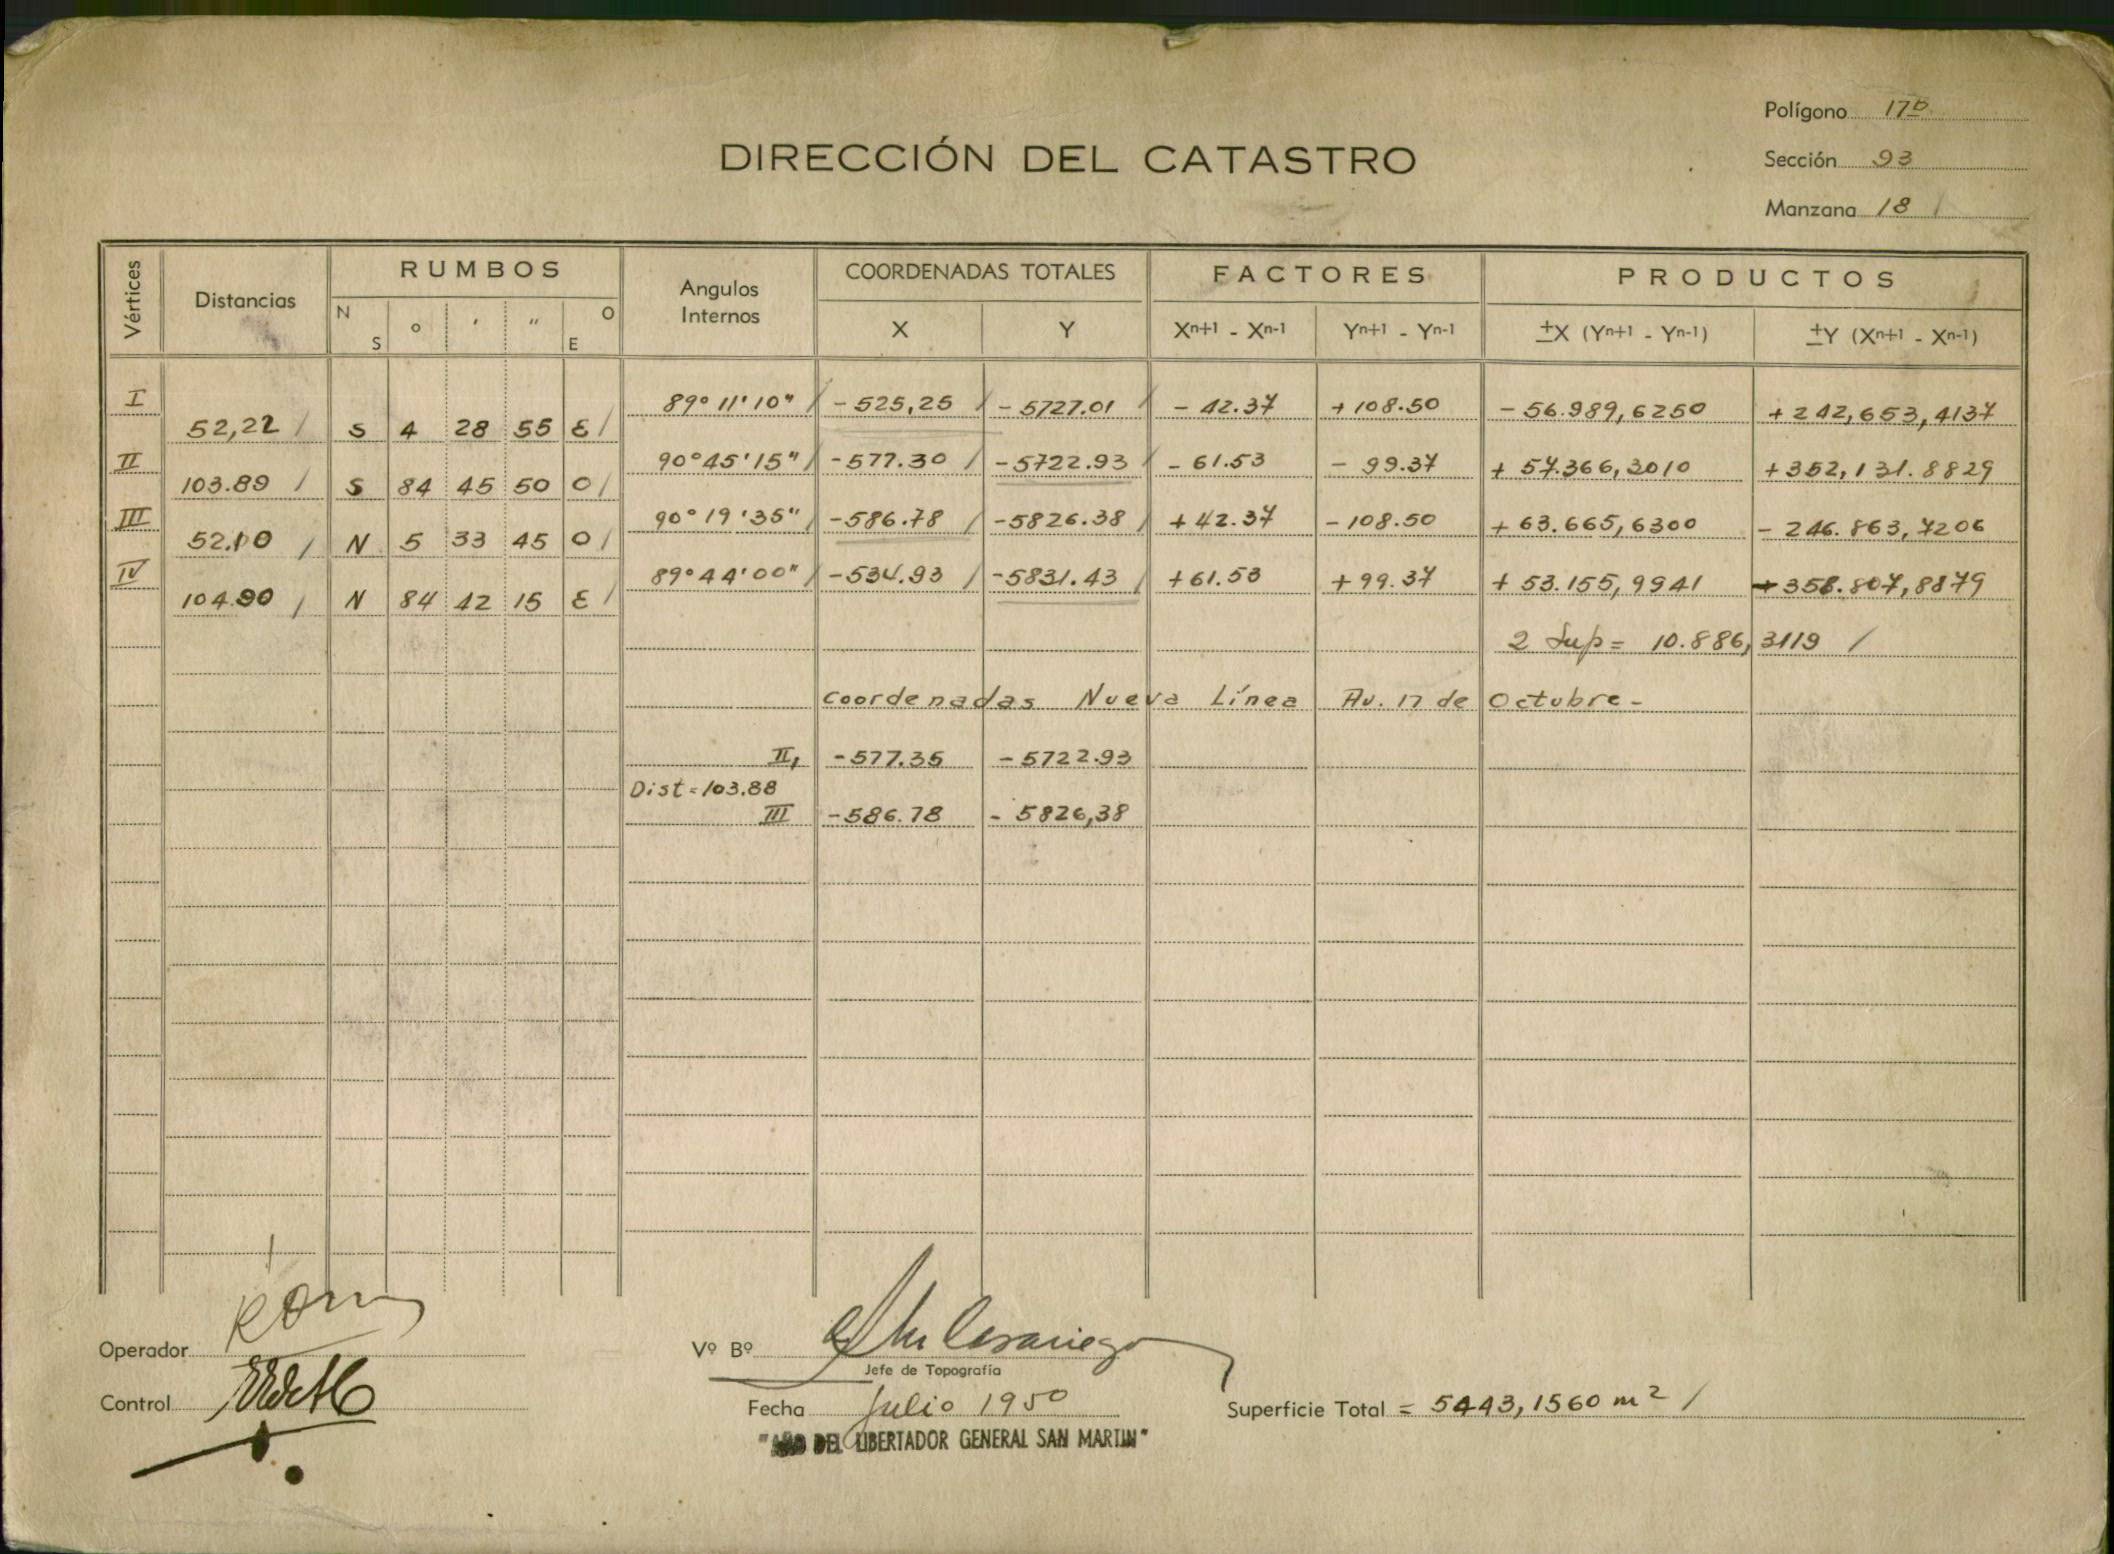 Polígono 17b
DIRECCIÓN DEL CATASTRO
Sección 93
Manzana 18
Vértices Distancias RUMBOS Angulos Internos COORDENADAS TOTALES FACTORES PRODUCTOS
N S ° ' " O E X Y Xn+1 - Xn-1 Yn+1 - Yn-1 ±X (Yn+1 - Yn-1) ±Y (Xn+1 - Xn-1)
I 89° 11' 10" - 525,25 - 5727.01 - 42.37 + 108.50 - 56.989,6250 + 242,653,4137
52,22 S 4 28 55 E
II 90° 45' 15" - 577.30 - 5722.93 - 61.53 - 99.37 + 57.366,3010 + 352,131.8829
103.89 S 84 45 50 O
III 90° 19' 35" - 586.78 - 5826.38 + 42.37 - 108.50 + 63.665,6300 - 246.863,7206
52.10 N 5 33 45 O
IV 89° 44' 00" - 534.93 - 5831.43 + 61.53 + 99.37 + 53.155,9941 - 358.807,8879
104.90 N 84 42 15 E
2 Sup = 10.886,3119
Coordenadas Nueva Línea Av. 17 de Octubre -
II, - 577.35 - 5722.93
Dist = 103.88
III - 586.78 - 5826,38
Operador
Vº Bº
Jefe de Topografía
Control
Fecha Julio 1950
Superficie Total = 5443,1560 m²
"AÑO DEL LIBERTADOR GENERAL SAN MARTIN"